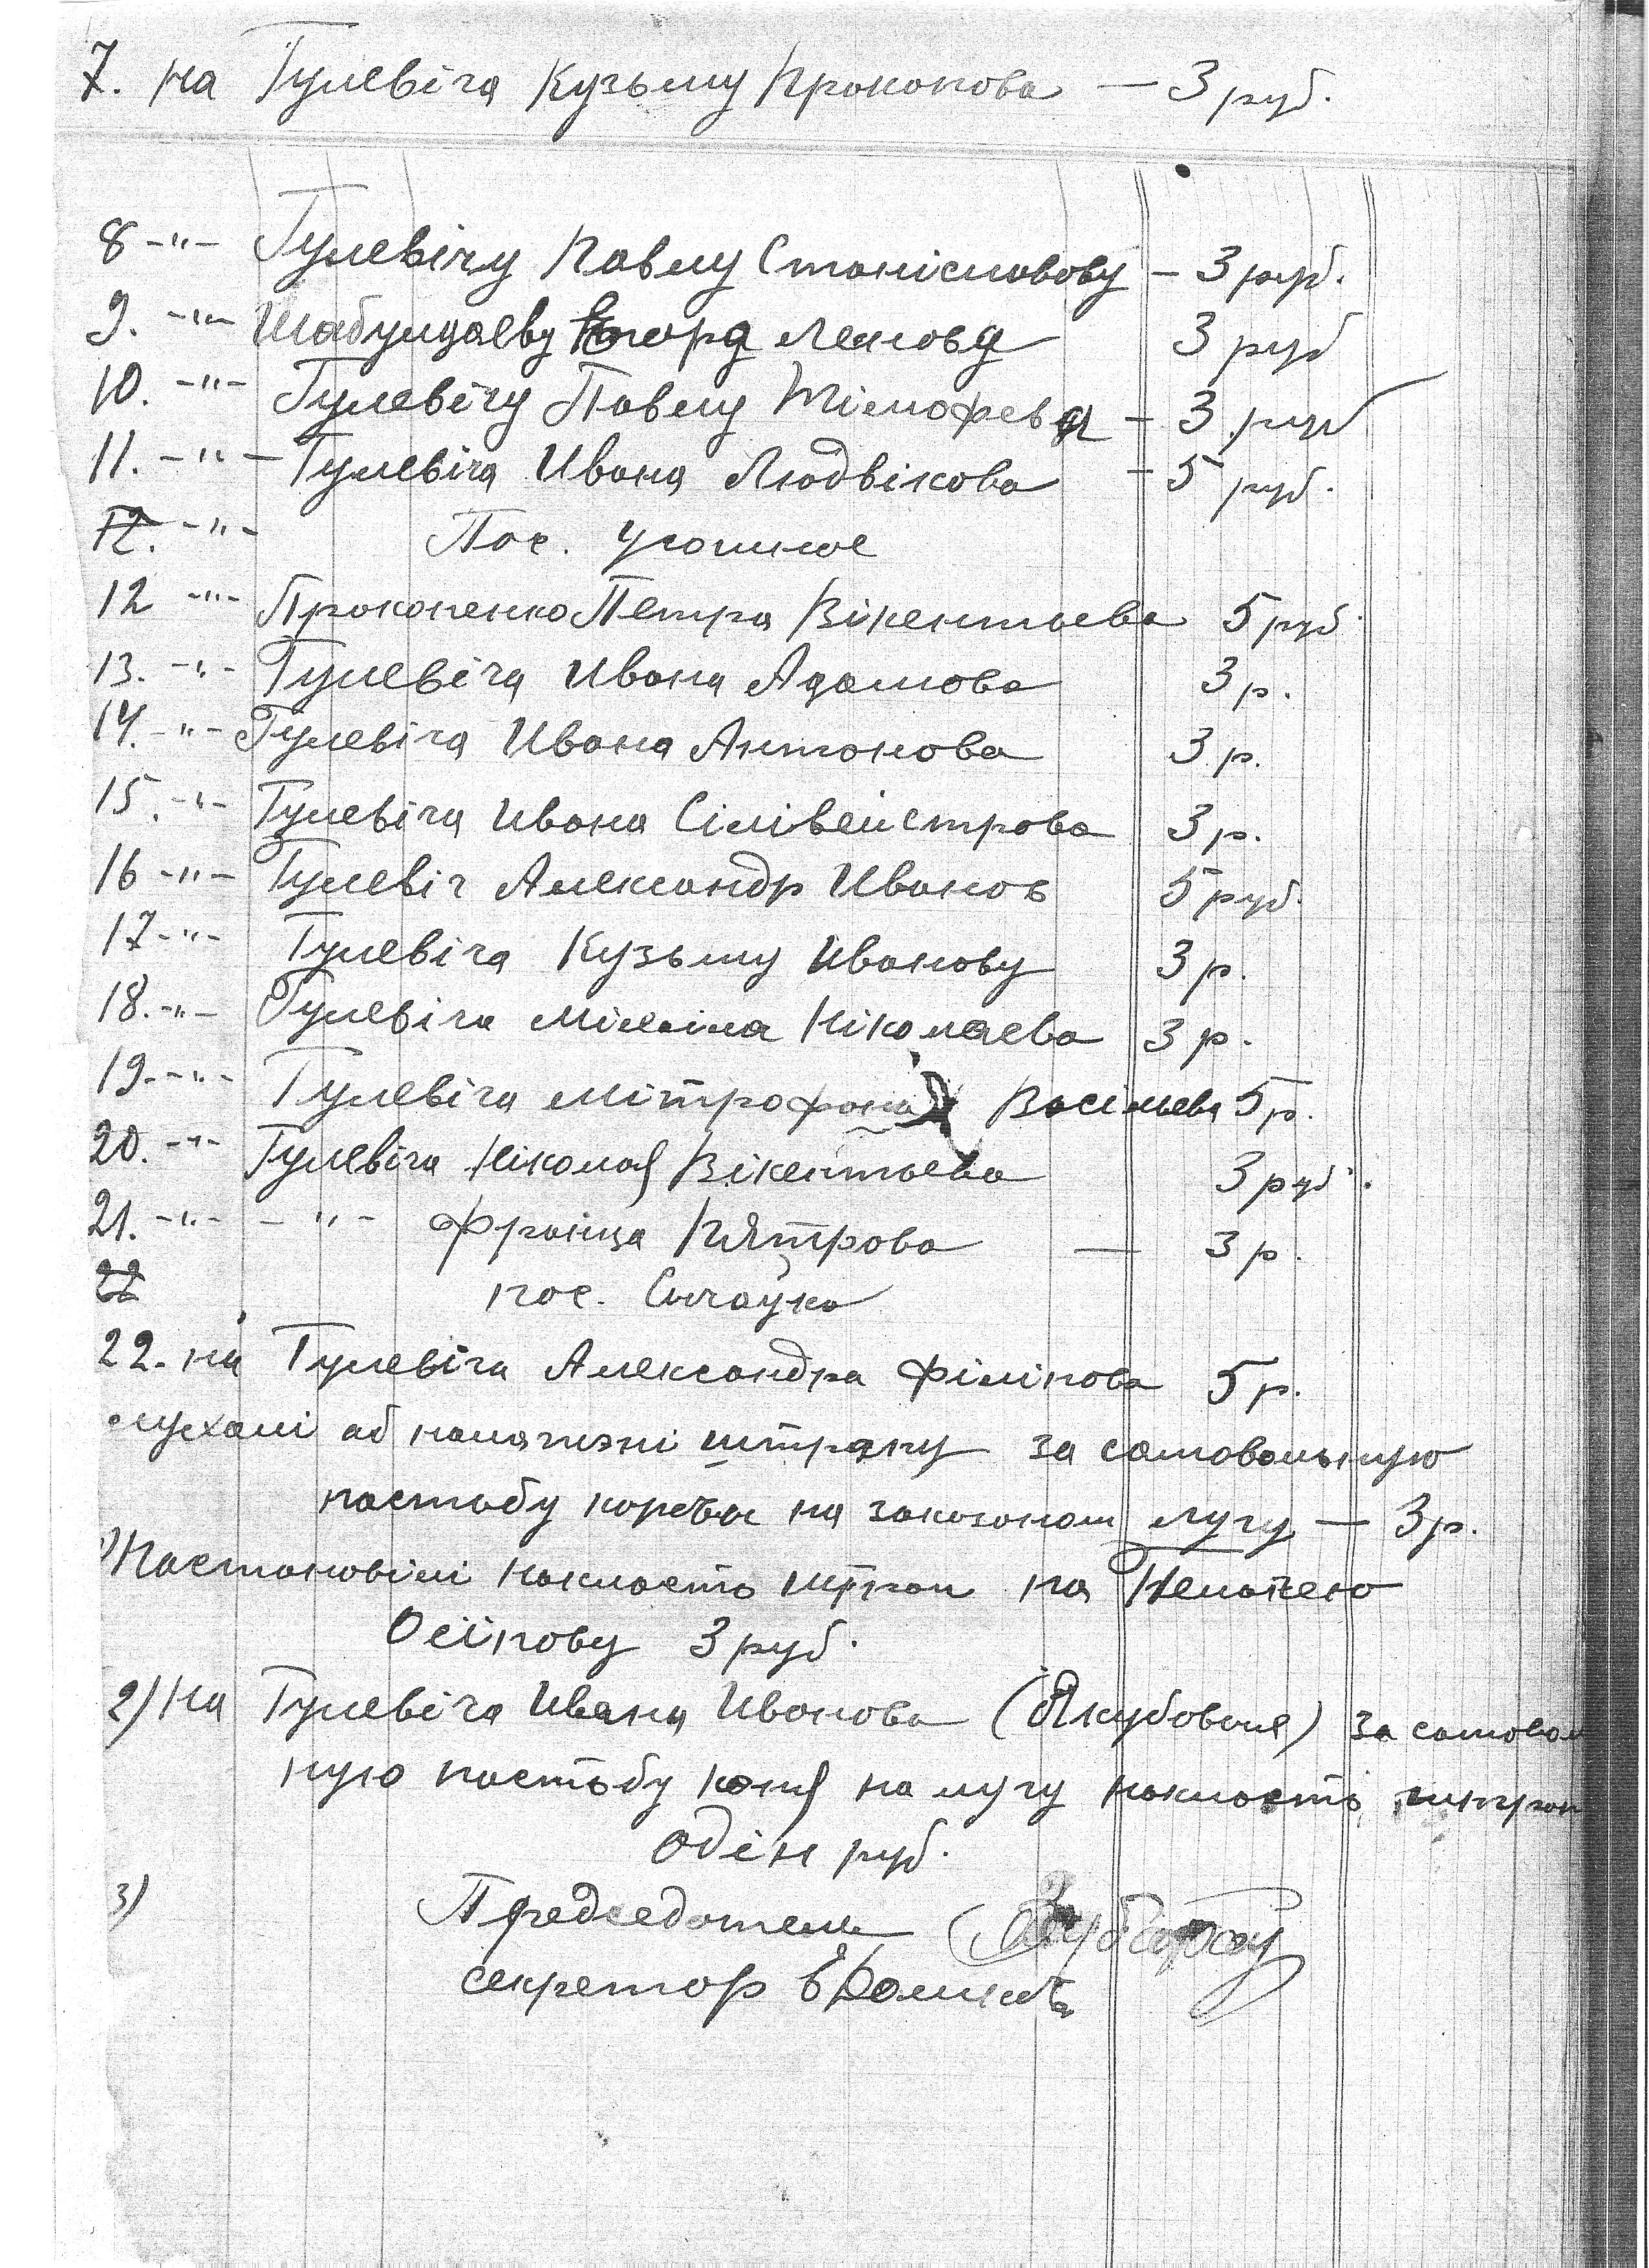 7. на Гулевіча Кузьму Прокопова — 3 руб.
8 -"- Гулевічу Павлу Станіславову — 3 руб.
9. -"- Шабундаеву Егора Леновa 3 руб
10. -"- Гулевічу Павлу Тімофева — 3 руб
11. -"- Гулевіча Ивана Людвікова — 5 руб.
12. -"- Пос.
12 -"- Прокопенко Петра Вікентьева 5 руб
13. -"- Гулевіча Ивана Адамова 3 р.
14. -"- Гулевіча Ивана Антонова 3 р.
15. -"- Гулевіча Ивана Сілівейстрова 3 р.
16 -"- Гулевіч Александр Иванов 5 руб.
17 -"- Гулевіча Кузьму Иванову 3 р.
18. -"- Гулевіча Міхаіла Ніколаева 3 р.
19. -"- Гулевіча Мітрофана Васільева 5 р.
20. -"- Гулевіча Ніколая Вікентьева 3 руб.
21. -"- -"- Франца Пятрова — 3 р.
22 пос.
22. на Гулевіча Александра Філіпова 5 р.
слухалі аб налажэні штрафу за самовольную
пастьбу на лугу — 3 р.
Пастановілі накласть штраф на
Осіпову 3 руб.
2) На Гулевіча Ивана Иванова (Якубовіча) за самоволь
ную пастьбу коня на лугу накласть штраф
одін руб.
3) Председатель
секретар